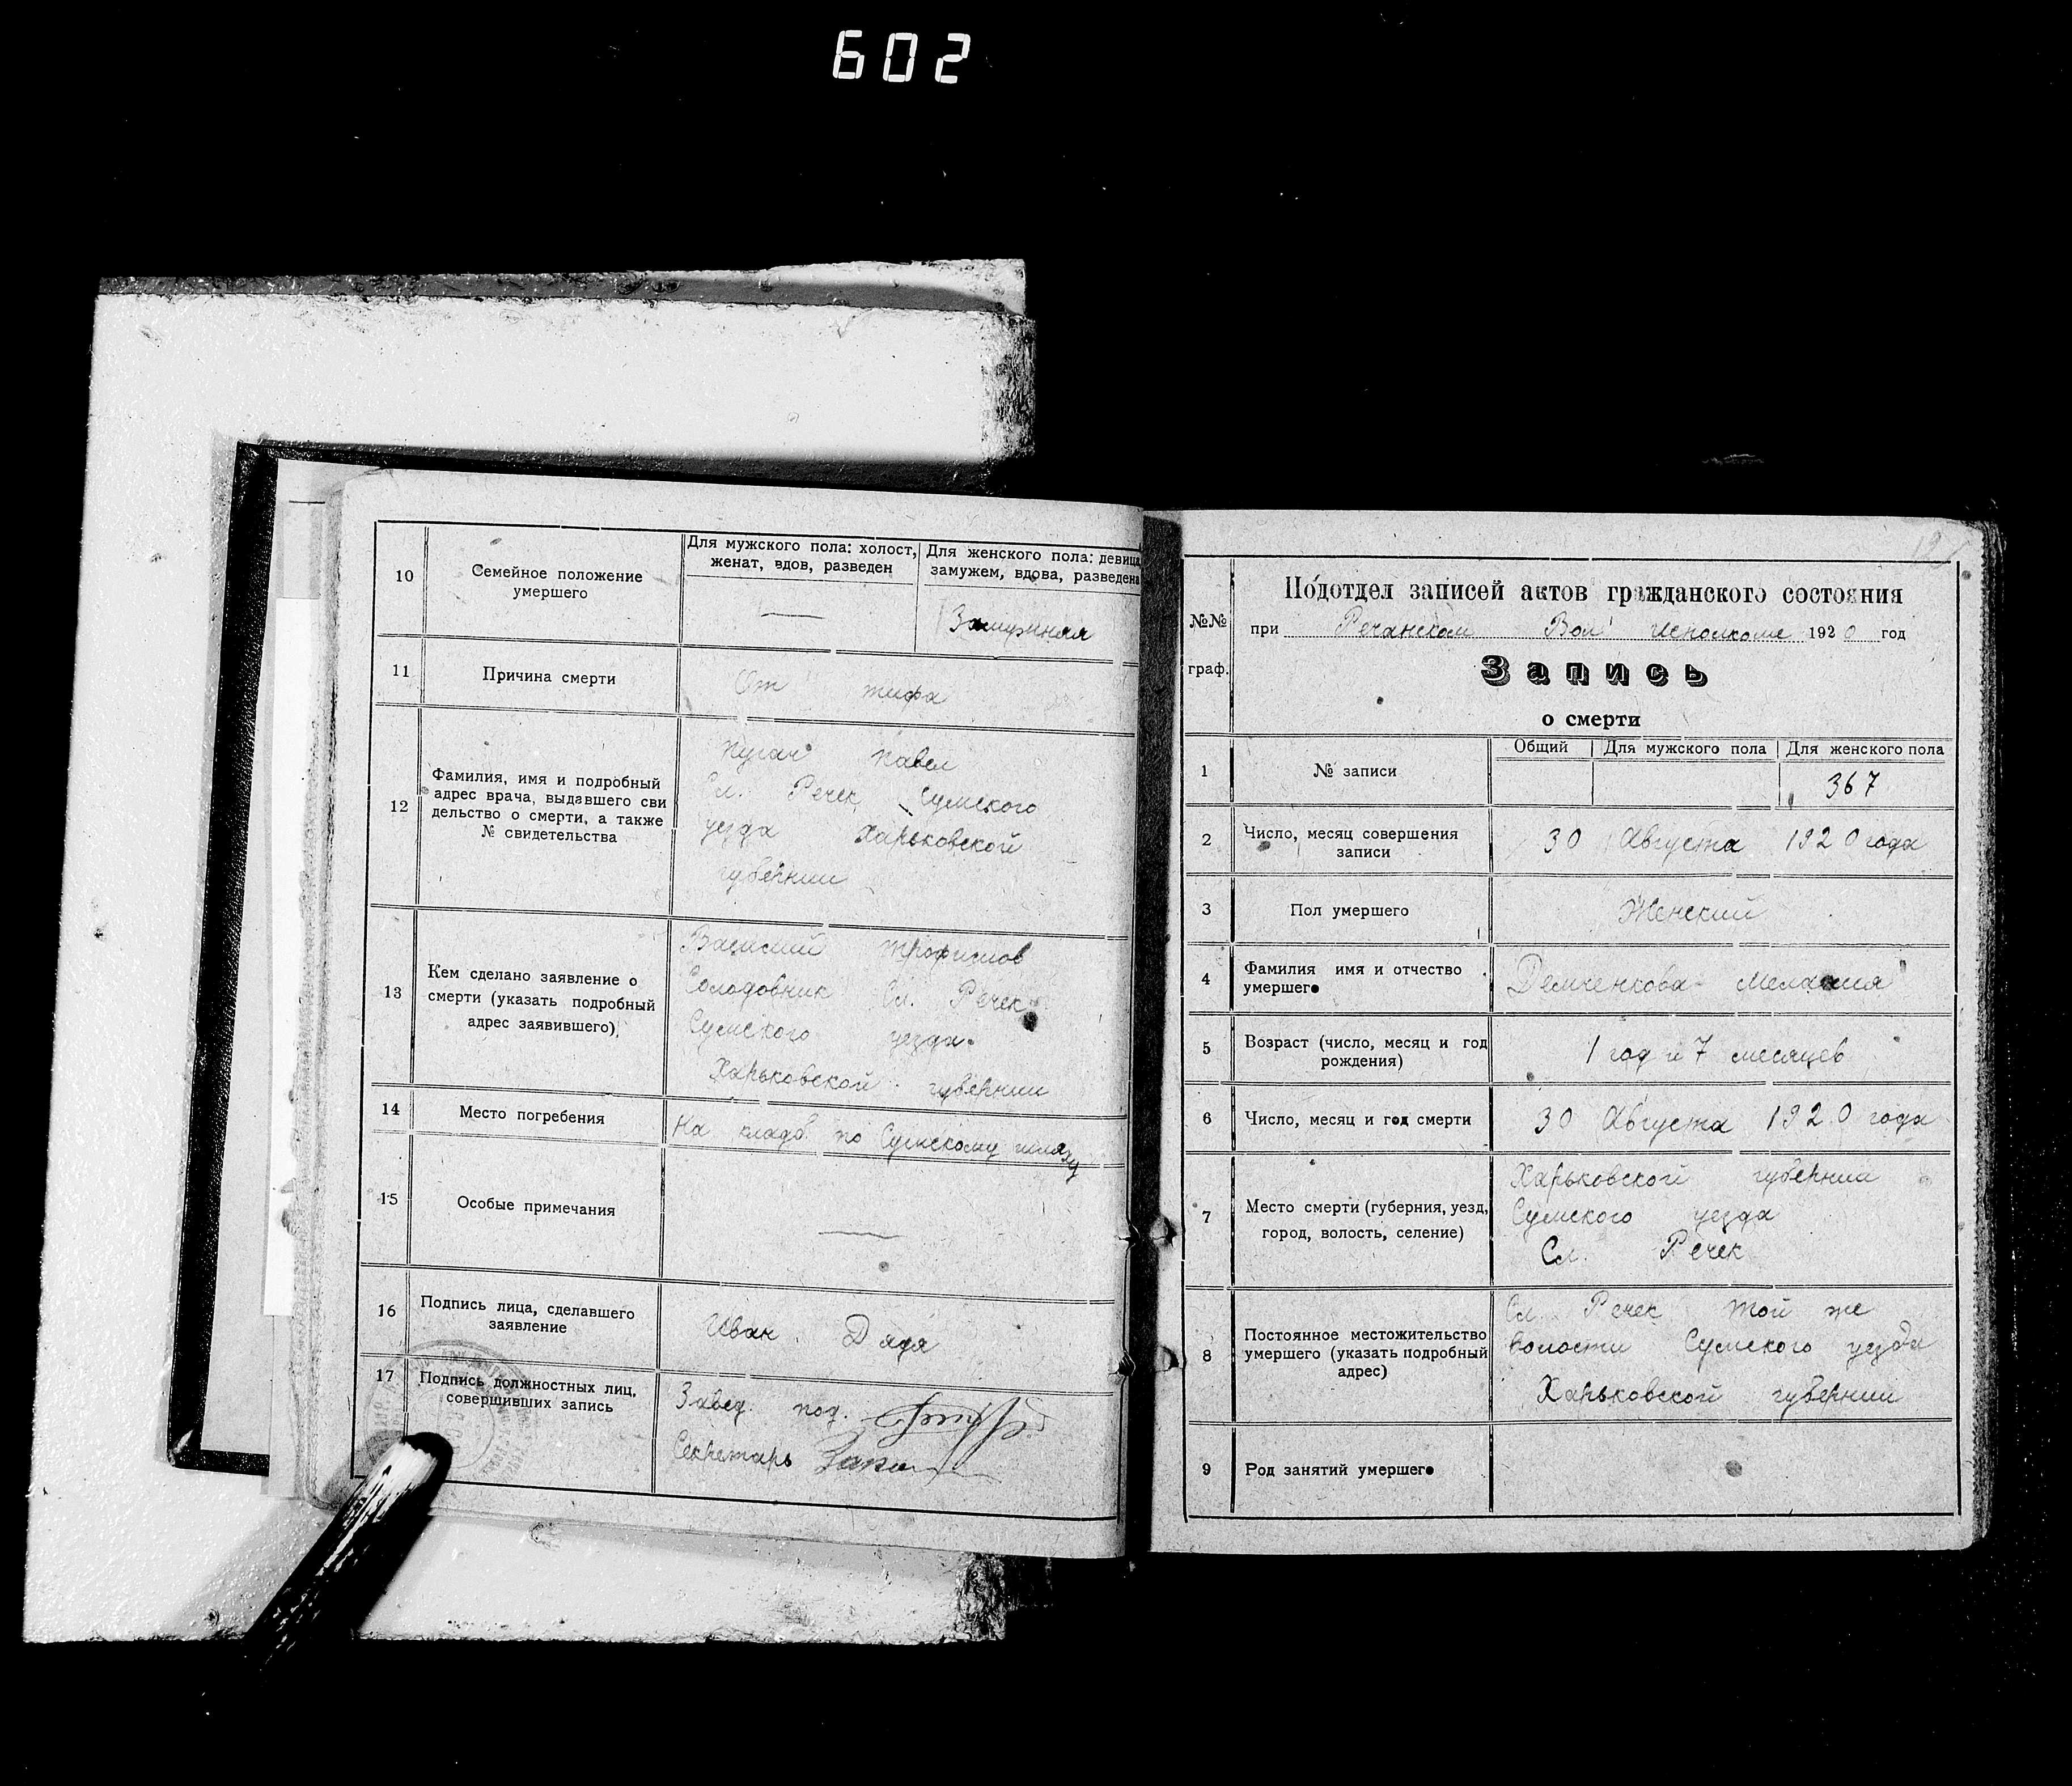 602
10
Семейное положение
умершего
Для мужского пола: холост,
женат, вдов, разведен
Для женского пола: девица,
замужем, вдова, разведена
Замужняя
11
Причина смерти
От тифа
12
Фамилия, имя и подробный
адрес врача, выдавшего сви
дельство о смерти, а также
№ свидетельства
Пугач Павел
Сл. Речек Сумского
уезда Харьковской
губернии
13
Кем сделано заявление о
смерти (указать подробный
адрес заявившего)
Василий Трофимов
Солодовник Сл. Речек
Сумского уезда
Харьковской губернии
14
Место погребения
На кладб. по Сумскому шляху
15
Особые примечания
16
Подпись лица, сделавшего
заявление
Иван Дядя
17
Подпись должностных лиц,
совершивших запись
Завед. под.
Секретарь
№№
граф.
Подотдел записей актов гражданского состояния
при Речанском Вол Исполкоме 1920 год
Запись
о смерти
1
№ записи
Общий
Для мужского пола
Для женского пола
367
2
Число, месяц совершения
записи
30 Августа 1920 года
3
Пол умершего
Женский
4
Фамилия имя и отчество
умершего
Демченкова Мелания
5
Возраст (число, месяц и год
рождения)
1 год и 7 месяцев
6
Число, месяц и год смерти
30 Августа 1920 года
7
Место смерти (губерния, уезд,
город, волость, селение)
Харьковской губернии
Сумского уезда
Сл. Речек
8
Постоянное местожительство
умершего (указать подробный
адрес)
Сл Речек той же
волости Сумского уезда
Харьковской губернии
9
Род занятий умершего